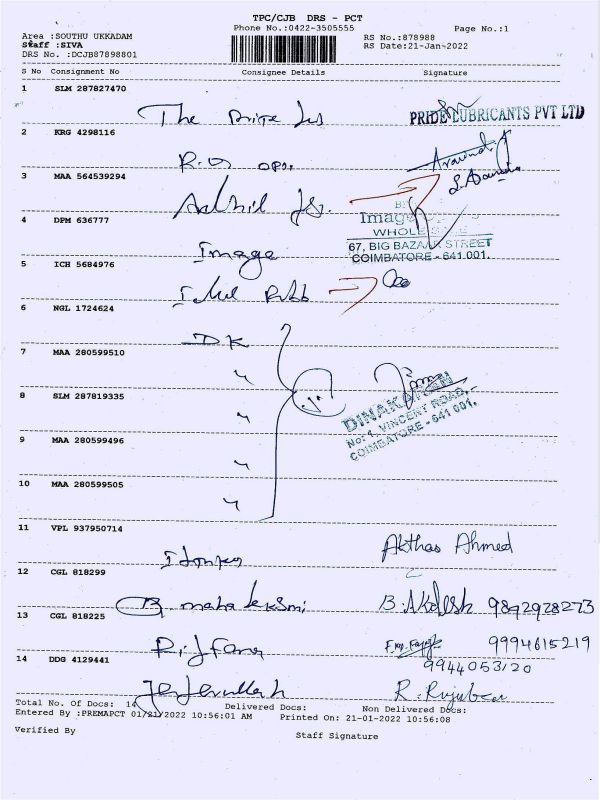 TPC/CJB DRS - PCT
Phone No.:0422-3505555 Page No.:1
Area :SOUTHU UKKADAM RS No.:878988
Staff :SIVA RS Date:21-Jan-2022
DRS No. :DCJB87898801
S No Consignment No Consignee Details Signature
1 SLM 287827470
The PRIDE LUBRICANTS PVT LTD
2 KRG 4298116
Aravind
3 MAA 564539294
4 DPM 636777
Image
WHOLE
67, BIG BAZAAR STREET
Image COIMBATORE - 641 001.
5 ICH 5684976
6 NGL 1724624
DK
7 MAA 280599510
8 SLM 287819335
DINAKARAN
No: 1, VINCENT ROAD,
COIMBATORE - 641 001.
9 MAA 280599496
10 MAA 280599505
11 VPL 937950714
Akthas Ahmed
12 CGL 818299
B. maha lakshmi 9892928273
13 CGL 818225
9994615219
14 DDG 4129441 9944053120
Total No. Of Docs: 14 Delivered Docs: Non Delivered Docs:
Entered By :PREMAPCT 01/21/2022 10:56:01 AM Printed On: 21-01-2022 10:56:08
Verified By Staff Signature